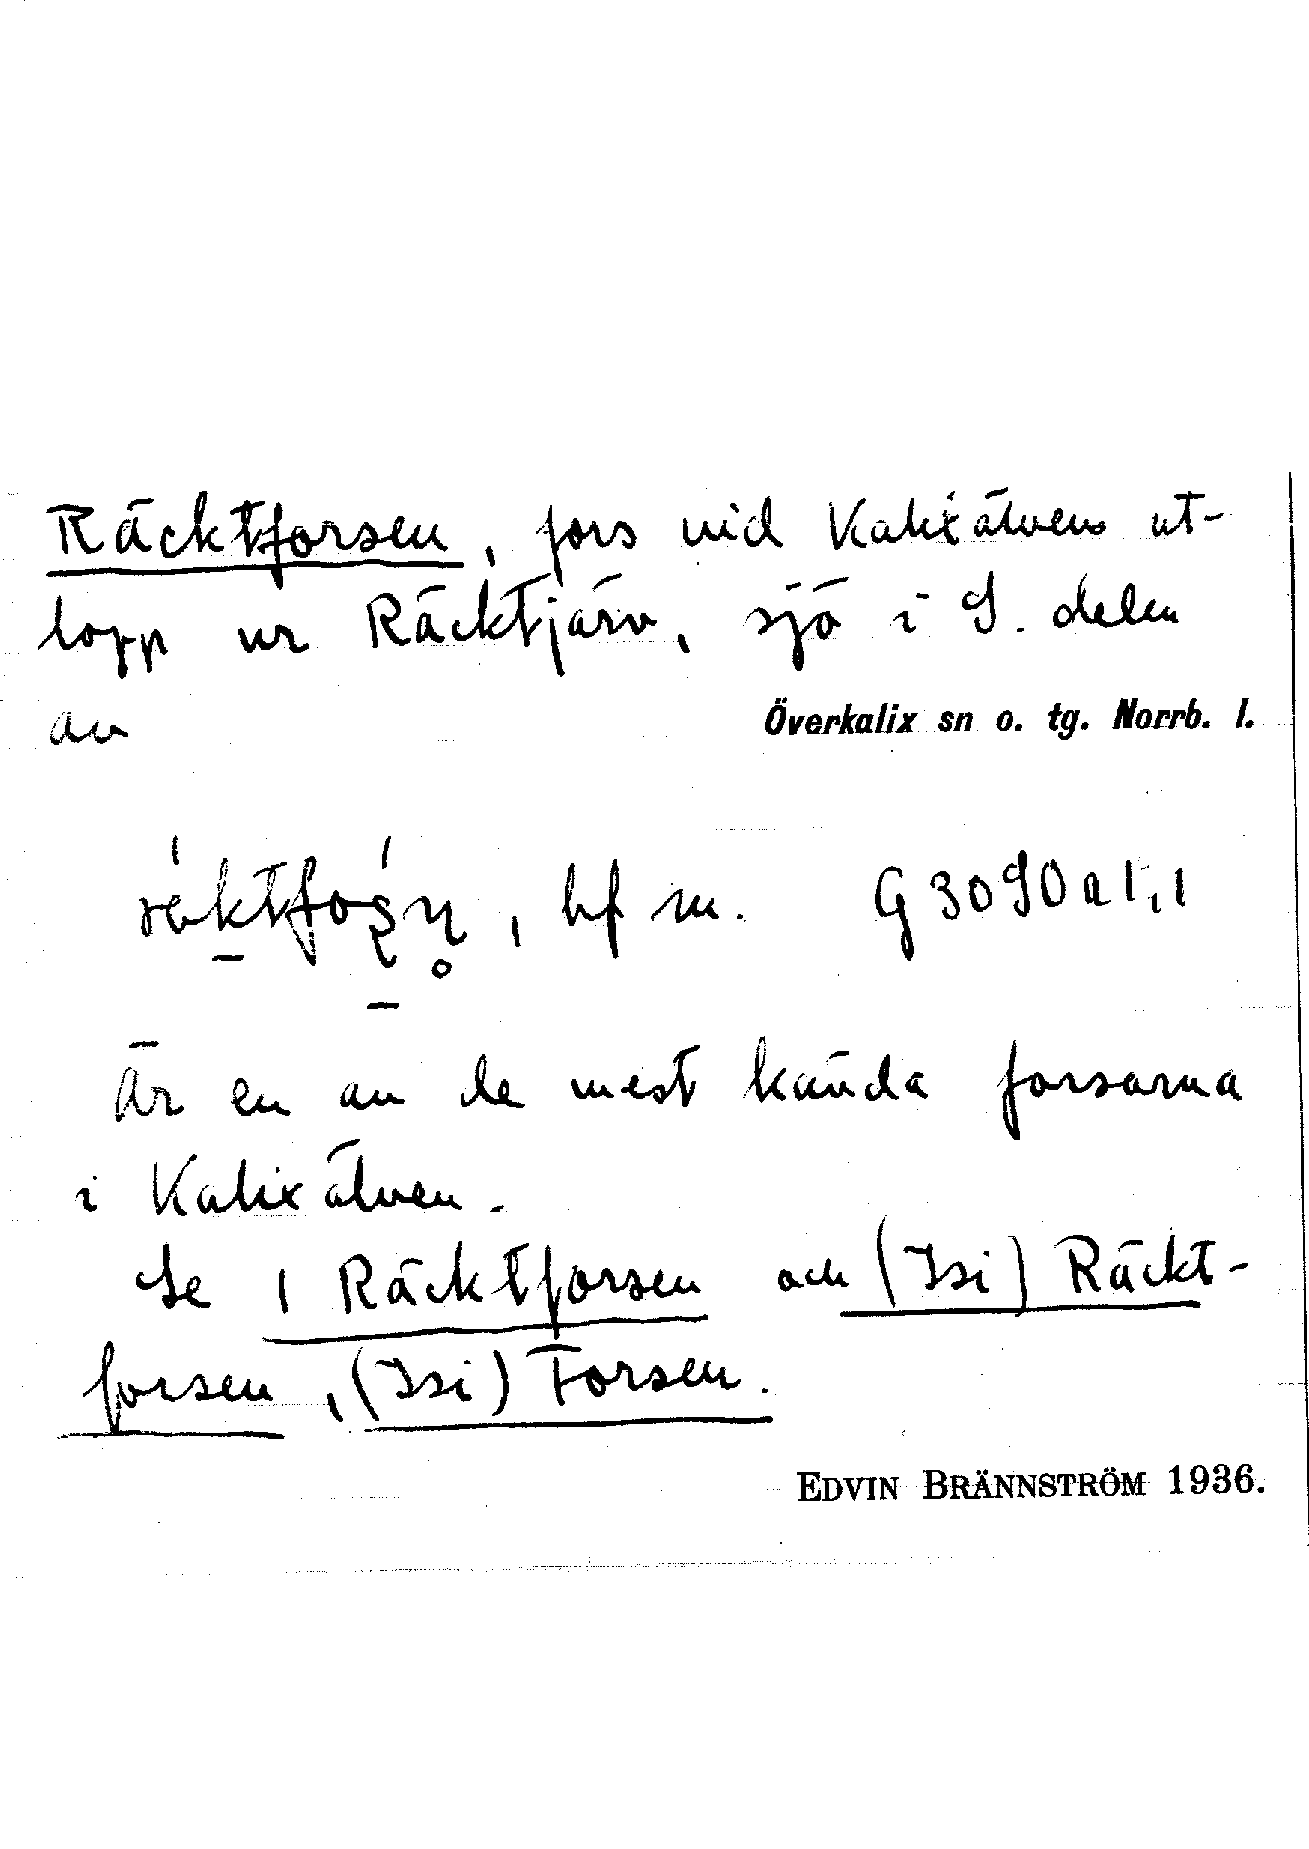 Räcktforsen, fors vid Kalixälvens ut-
lopp ur Räcktjärv, sjö i S. delen
av Överkalix sn o. tg. Norrb. l.
, bf m. G 3090 a 1,1
Är en av de mest kända forsarna
i Kalixälven.
Se 1 Räcktforsen och (Isi) Räckt-
forsen, (Isi) Forsen.
EDVIN BRÄNNSTRÖM 1936.